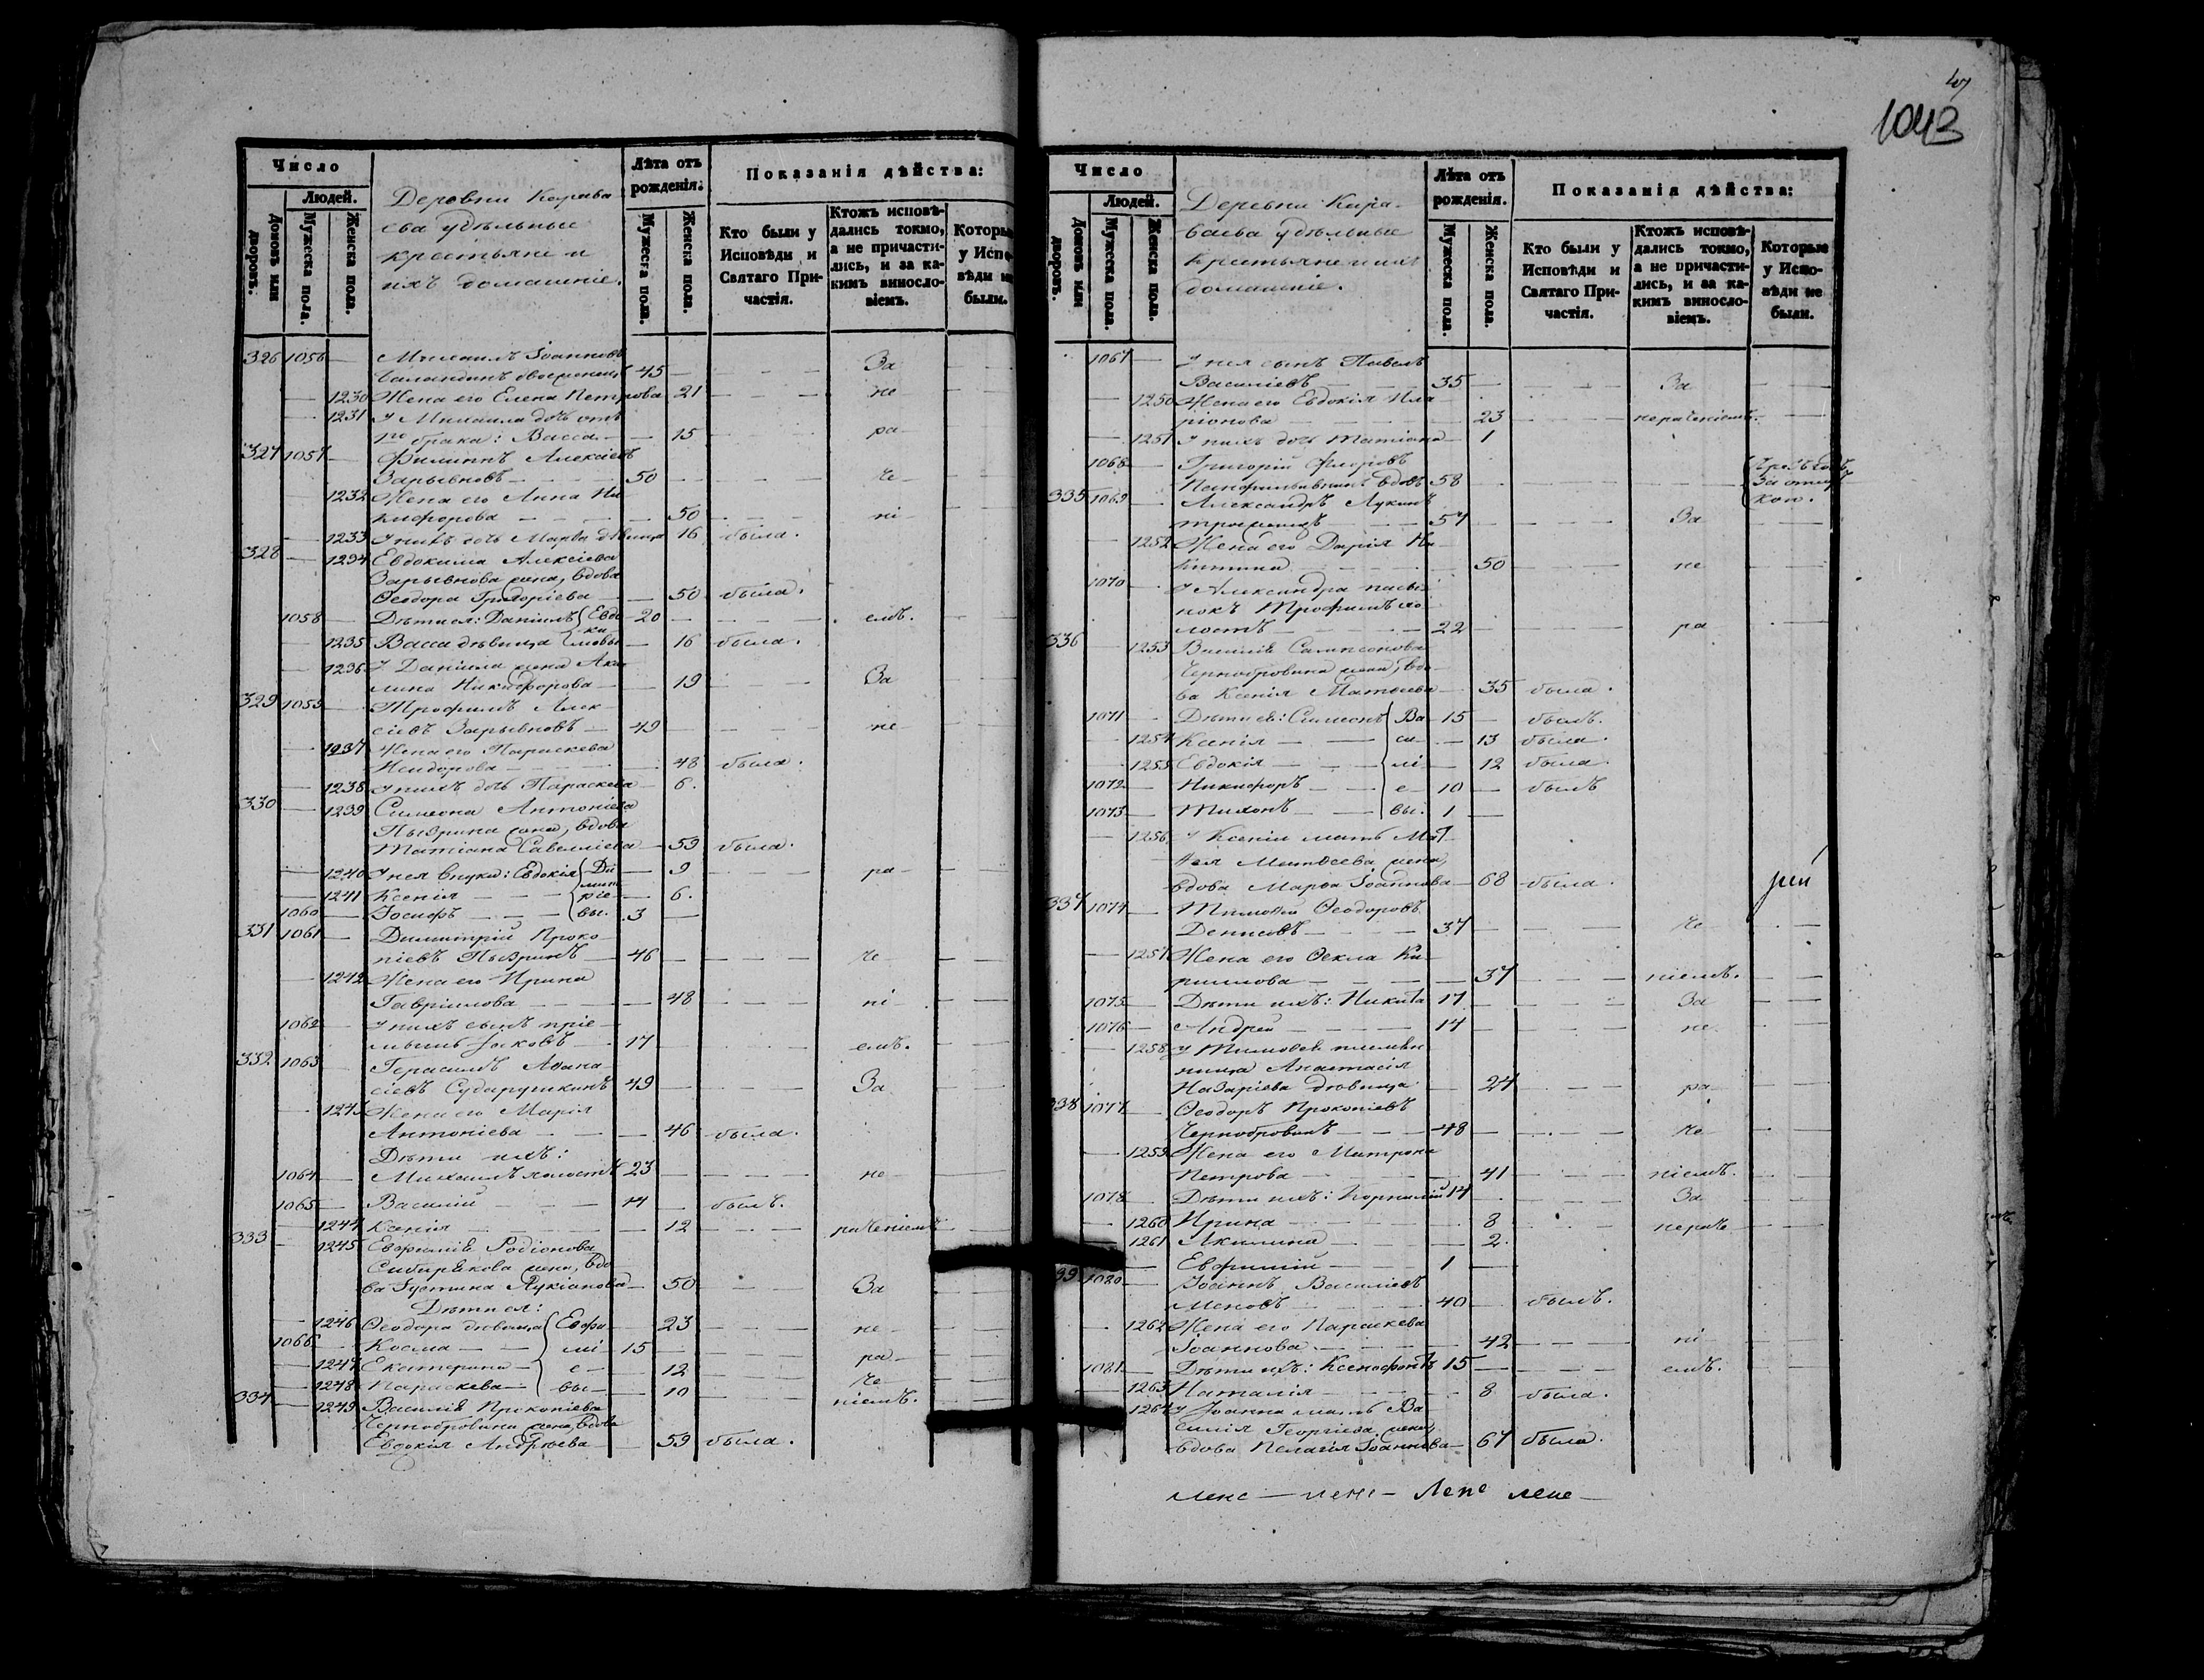 Число
Людей.
Домовъ или дворовъ.
Мужеска пола.
Женска пола.
Деревни Карава
ева удѣльные
крестьяне и
ихъ домашніе.
Лѣта отъ рожденія.
Мужеска пола.
Женска пола.
Показанія дѣйства:
Кто были у Исповѣди и Святаго Причастія.
Ктожъ исповѣдались токмо, а не причастились, и за какимъ винословіемъ.
Которые у Исповѣди не были.
326 1056 Михаилъ Іоанновъ
45 За
1230 Жена его Елена Петрова 21 не
1231 У Михаила дочь отъ
1го брака: Васса 15 ра
327 1057 Филиппъ Алексіевъ
Зарывновъ 50 че
1232 Жена его Анна Ни
кифорова 50 ні
1233 У нихъ дочь Марѳа дѣвица 16 была.
328 1234 Евдокима Алексіева
Зарывнова жена, вдова
Ѳеодора Григоріева 50 была.
1058 Дѣти ея: Даніилъ Евдо 20 емъ.
ки
1235 Васса дѣвица мовы 16 была.
1236 У Даніила жена Аки
лина Никифорова 19 За
329 1059 Трофимъ Алек
сіевъ Зарывновъ 49 не
1237 Жена его Параскева
48 была.
1238 У нихъ дочь Параскева 6.
330 1239 Симеона Антоніева
Пызрина жена, вдова
Татіана Савеліева 59 была.
1240 У нея внуки: Евдокія Ди 9 ра
мит
1241 Ксенія ріе 6.
1060 Іосифъ вы. 3
331 1061 Димитрій Проко
піевъ Пызринъ 46 че
1242 Жена его Ирина
Гавріилова 48 ні
1062 У нихъ сынъ пріе
мышъ Іаковъ 17 емъ.
332 1063 Герасимъ Аѳана
сіевъ Сударушкинъ 49 За
1243 Жена его Марія
Антоніева 46 была.
Дѣти ихъ:
1064 Михаилъ холостъ 23 не
1065 Василій 14 былъ.
1244 Ксенія 12 раченіемъ
333 1245 Евфимія Родіонова
Сибирякова жена, вдо
ва Іустина Лукіанова 50 За
Дѣти ея:
1246 Ѳеодора дѣвица Евфи 23 не
1066 Косма мі 15
1247 Екатерина е 12 ра
че
1248 Параскева вы 10
334 1249 Василія Прокопіева ніемъ.
Чернобровина жена, вдова
Евдокія Андрѣева 59 была.
1043
Число
Людей.
Домовъ или дворовъ.
Мужеска пола.
Женска пола.
Деревни Кара
ваева удѣльные
крестьяне и ихъ
домашніе.
Лѣта отъ рожденія.
Мужеска пола.
Женска пола.
Показанія дѣйства:
Кто были у Исповѣди и Святаго Причастія.
Ктожъ исповѣдались токмо, а не причастились, и за какимъ винословіемъ.
Которые у Исповѣди не были.
1067 У нея сынъ Павелъ
Василіевъ 35 За
1250 Жена его Евдокія Ила
ріонова 23 нераченіемъ.
1251 У нихъ дочь Татіана 1
1068 Григорій Флоровъ
вдовъ 58
335 1069 Александръ Лукинъ
57 За
1252 Жена его Дарія Ни
китина 50 не
1070 У Александра пасы
нокъ Трофимъ хо
лостъ 22 ра
336 1253 Василія Сампсонова
Чернобровина жена, вдо
ва Ксенія Матѳеева 35 была.
1071 Дѣти ея: Симеонъ Ва 15 былъ.
1254 Ксенія си 13 была.
1255 Евдокія лі 12 была.
1072 Никифоръ е 10 былъ
1073 Тихонъ вы. 1
1256 У Ксеніи мать Мат
ѳея Матѳеева жена,
вдова Марѳа Іоаннова 68 была.
337 1074 Тимоѳей Ѳеодоровъ
Денисовъ 37 че
1257 Жена его Ѳекла Ки
риллова 37 ніемъ.
1075 Дѣти ихъ: Никита 17 За
1076 Андрей 14 не
1258 У Тимоѳея племян
ница Анастасія
Назаріева дѣвица 24 ра
338 1077 Ѳеодоръ Прокопіевъ
Чернобровинъ 48 че
1259 Жена его Матрона
Петрова 41 ніемъ.
1078 Дѣти ихъ: Корнилій 14 За
1260 Ирина 8 нераче
1261 Акилина 2.
Евфимій 1
339 1080 Іоаннъ Василіевъ
40 былъ.
1262 Жена его Параскева
Іоаннова 42 ні
1081 Дѣти ихъ: Ксенофонтъ 15 емъ.
1263 Наталія 8 была.
1264 У Іоанна мать Ва
силія Георгіева жена,
вдова Пелагія Іоаннова 67 была.